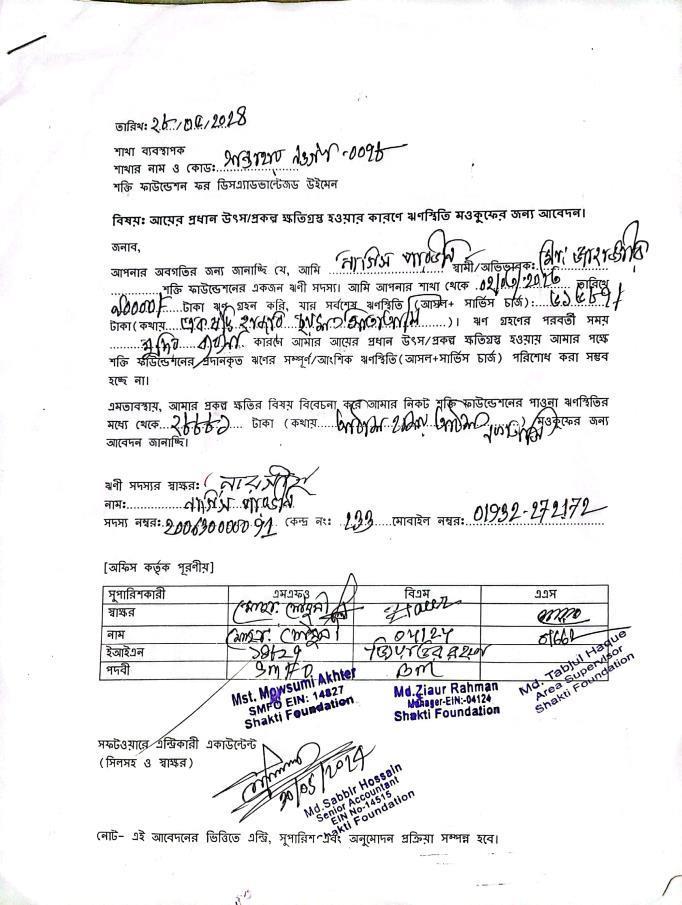 তারিখ: ২৮/০৫/2024
শাখা ব্যবস্থাপক
শাখার নাম ও কোড:
শক্তি ফাউন্ডেশন ফর ডিসএ্যাডভান্টেজড উইমেন
বিষয়: আয়ের প্রধান উৎস/প্রকল্প ক্ষতিগ্রস্থ হওয়ার কারণে ঋণস্থিতি মওকুফের জন্য আবেদন।
জনাব,
আপনার অবগতির জন্য জানাচ্ছি যে, আমি নার্গিস পারভীন স্বামী/অভিভাবক:
শক্তি ফাউন্ডেশনের একজন ঋণী সদস্য। আমি আপনার শাখা থেকে তারিখে
টাকা ঋণ গ্রহন করি, যার সর্বশেষ ঋণস্থিতি (আসল+ সার্ভিস চার্জ):
টাকা (কথায়) । ঋণ গ্রহণের পরবর্তী সময়
মুদি ব্যবসা কারণে আমার আয়ের প্রধান উৎস/প্রকল্প ক্ষতিগ্রস্থ হওয়ায় আমার পক্ষে
শক্তি ফাউন্ডেশনের প্রদানকৃত ঋণের সম্পূর্ণ/আংশিক ঋণস্থিতি (আসল+সার্ভিস চার্জ) পরিশোধ করা সম্ভব
হচ্ছে না।
এমতাবস্থায়, আমার প্রকল্প ক্ষতির বিষয় বিবেচনা করে আমার নিকট শক্তি ফাউন্ডেশনের পাওনা ঋণস্থিতির
মধ্যে থেকে টাকা (কথায় ) মওকুফের জন্য
আবেদন জানাচ্ছি।
ঋণী সদস্যর স্বাক্ষর:
নাম: নার্গিস পারভীন
সদস্য নম্বর: কেন্দ্র নং: 233 মোবাইল নম্বর: 01932-272172
[অফিস কর্তৃক পূরণীয়]
সুপারিশকারী এমএফও বিএম এএস
স্বাক্ষর
নাম
ইআইএন
পদবী SMFO BM
Mst. Mowsumi Akhter
SMFO EIN: 14827
Shakti Foundation
Md.Ziaur Rahman
Manager-EIN:-04124
Shakti Foundation
Md. Tabjul Haque
Area Supervisor
Shakti Foundation
সফটওয়ারে এন্ট্রিকারী একাউন্টেন্ট
(সিলসহ ও স্বাক্ষর)
30/05/2024
Md.Sabbir Hossain
Senior Accountant
EIN No-14515
Shakti Foundation
নোট- এই আবেদনের ভিত্তিতে এন্ট্রি, সুপারিশ এবং অনুমোদন প্রক্রিয়া সম্পন্ন হবে।